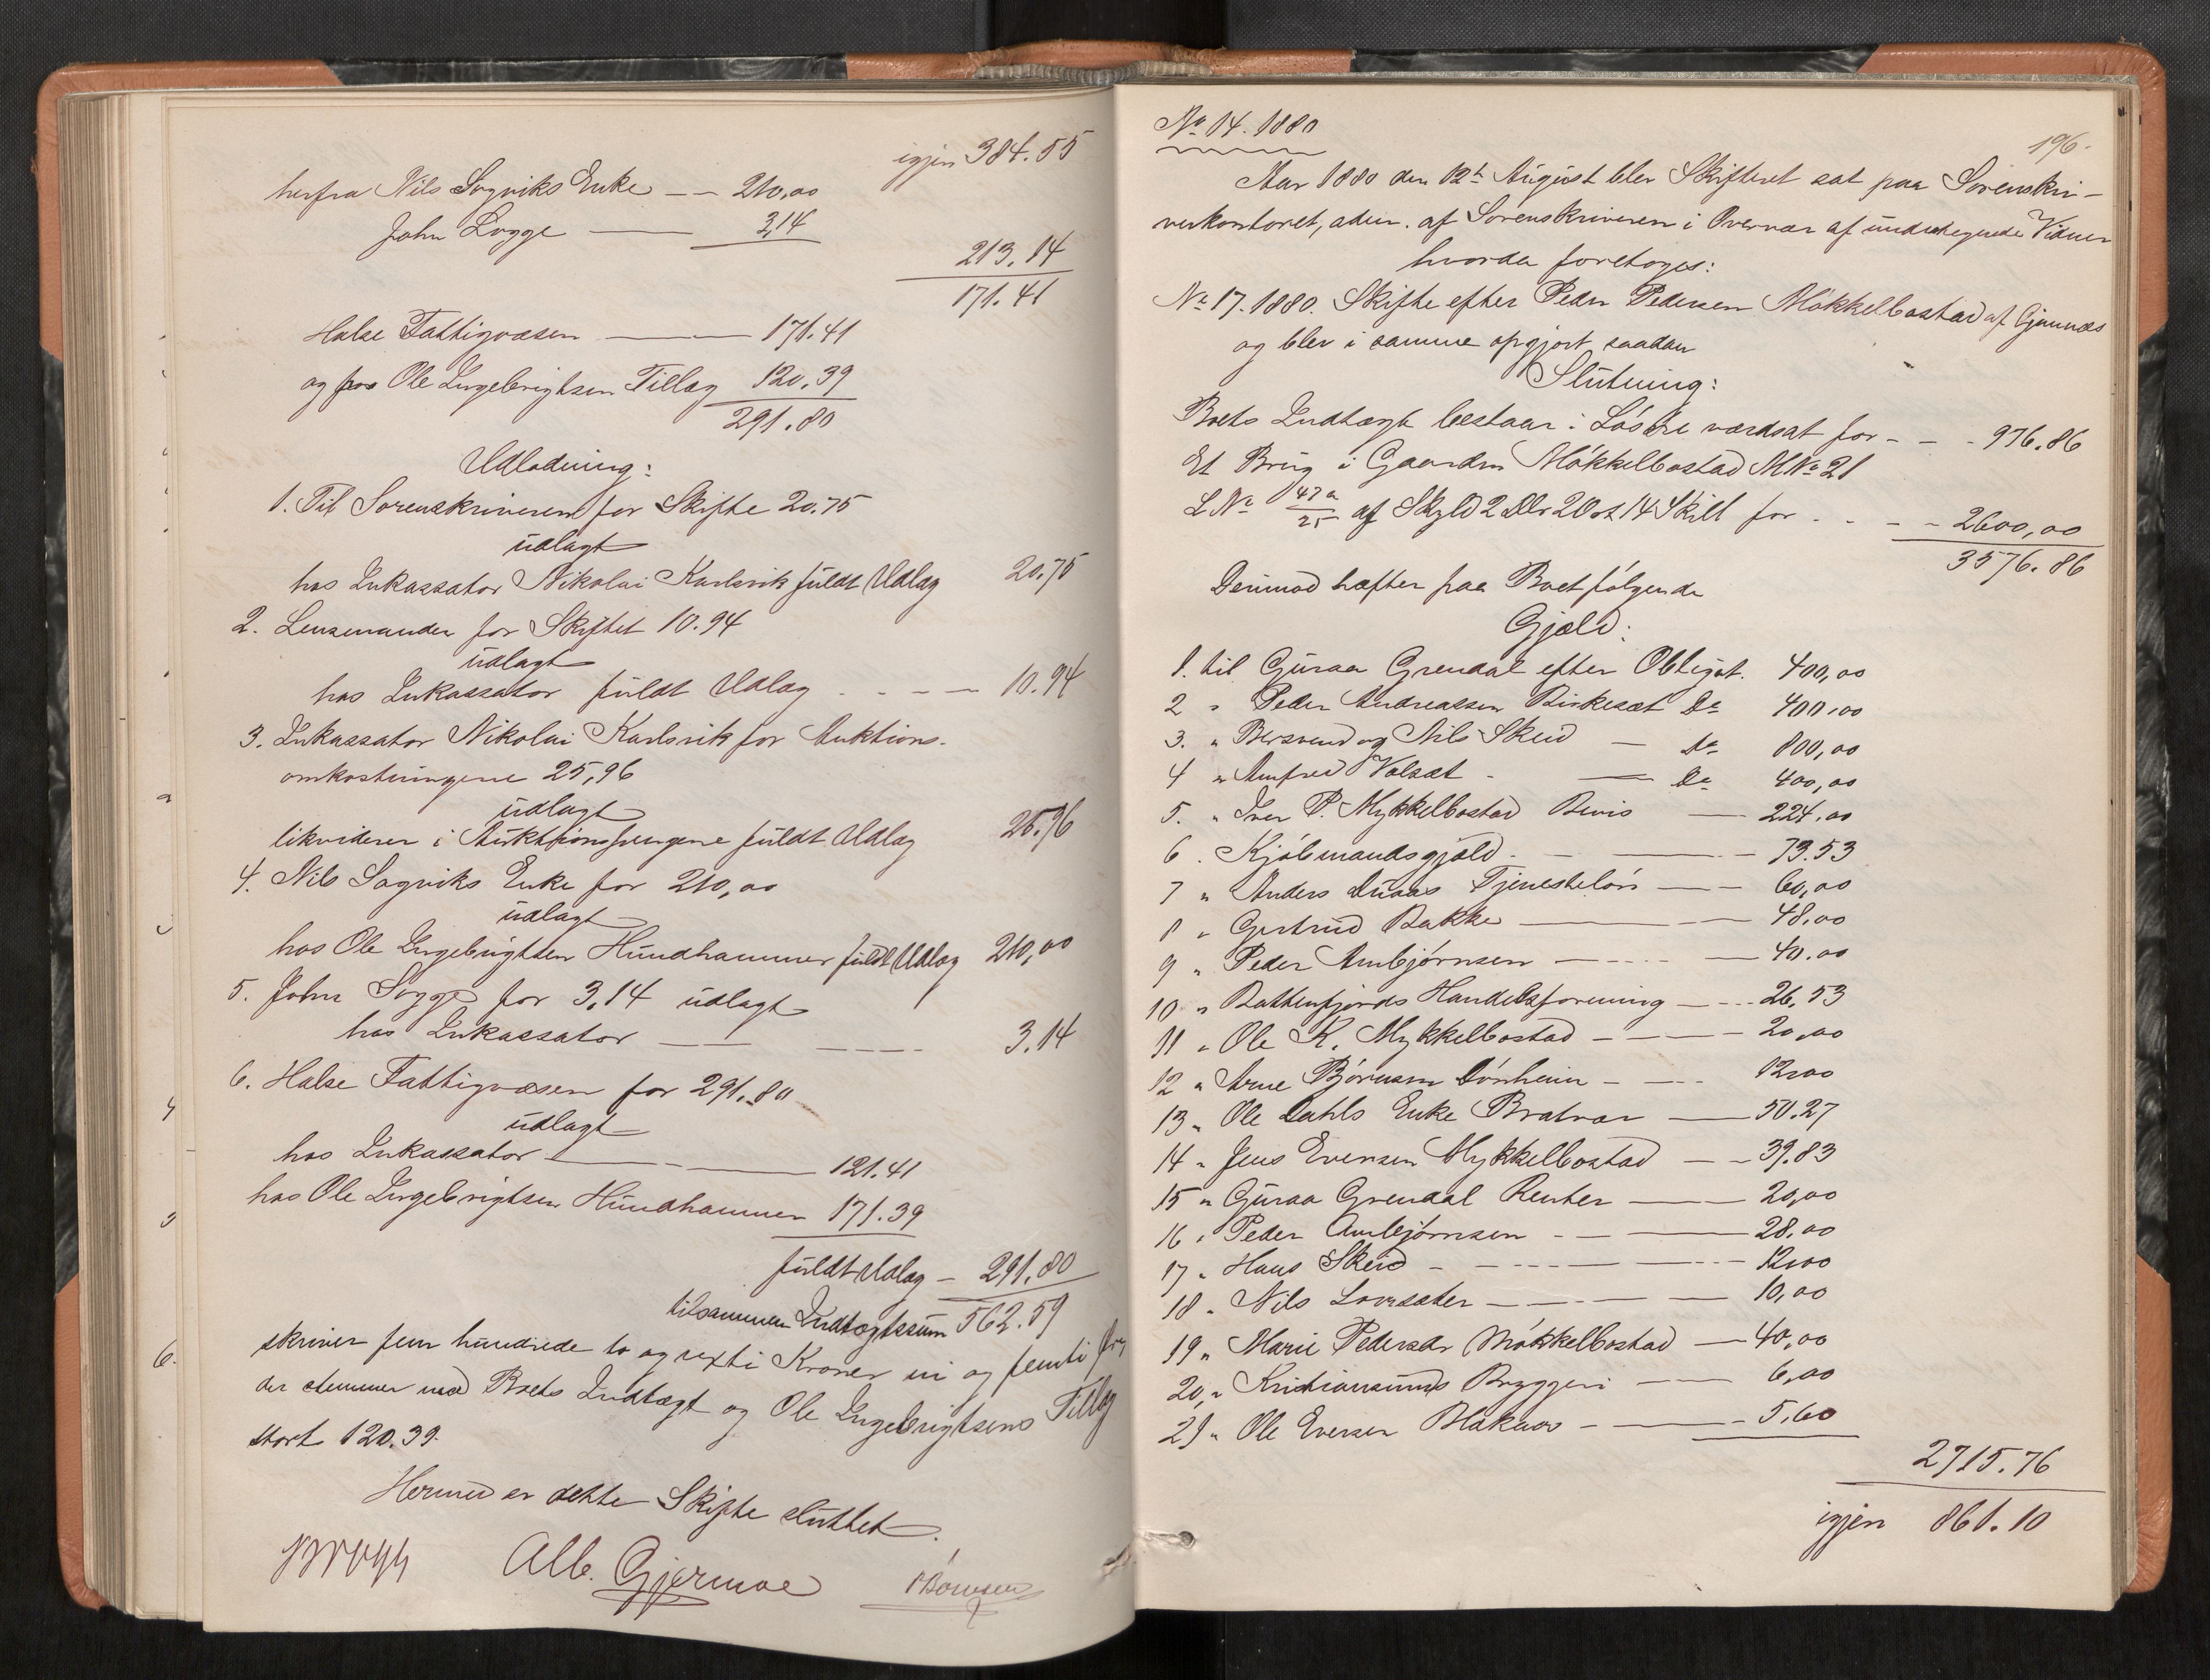 igjen 384.55
herfra Nils Sogviks Enke — — 210,00
John Sogge — 3,14
213.14
171.41
Halse Fattigvæsen — 171.41
og hos Ole Ingebrigtsen Tillæg 120.39
291.80
Udlodning:
1. Til Sorenskriveren for Skifte 20.75
udlagt
hos Inkassator Nikolai Karlsvik fuldt Udlæg 20.75
2. Lensmanden for Skiftet 10.94
udlagt
hos Inkassator fuldt Udlæg - - - 10.94
3. Inkassator Nikolai Karlsvik for Auktions-
omkostningene 25,96
udlagt
likviderer i Auktionspengene fuldt Udlæg 25.96
4. Nils Sogviks Enke for 210,00
udlagt
hos Ole Ingebrigtsen Hundhammer fuldt Udlæg 210,00
5. John Sogge for 3,14 udlagt
hos Inkassator — — 3.14
6. Halse Fattigvæsen for 291.80
udlagt
hos Inkassator — 121.41
hos Ole Ingebrigtsen Hundhammer 171.39
fuldt Udlæg — 291.80
tilsammen Indtægtssum 562.59
skriver fem hundrede to og sexti Kroner ni og femti Øre,
der stemmer med Boets Indtægt og Ole Ingebrigtsens Tillæg
stort 120.39.
Hermed er dette Skifte sluttet.
Alb. Gjermoe
No 14. 1880
196.
Aar 1880 den 12te August blev Skifteret sat paa Sorenskri-
verkontoret, adm. af Sorenskriveren i Overvær af undertegnede Vidner
hvorda foretoges:
No 17. 1880. Skifte efter Peder Pedersen Mökkelbostad af Gjemnæs
og blev i samme opgjort saadan
Slutning:
Boets Indtægt bestaar i Løsøre værdsat for - - - 976.86
Et Brug i Gaarden Mökkelbostad MNo 21
LNo 47a/25 af Skyld 2 Dlr 2 Ort 14 Skill for - - - 2600,00
3576.86
Derimod hæfter paa Boet følgende
Gjæld:
1. til Guraa Grendal efter Obligat. 400,00
2 " Peder Andreassen Birkesæt Do 400,00
3. " Bersvend og Nils Skeid — Do 800,00
4 " Arnfred Volsæt - — Do 400,00
5. " Iver P. Mykkelbostad Bevis — 224.00
6. Kjøbmandsgjæld - — 73.53
7 " Anders Duaas Tjenesteløn — 60,00
8 " Gertrud Bakke — 48.00
9 " Peder Arnbjørnsen — 40.00
10 " Battenfjords Handelsforening — 26,53
11 " Ole K. Mykkelbostad — 20,00
12 " Arne Bjørnsen Dónheim - — 12,00
13 " Ole Dahls Enke Bratvær — 50.27
14 " Jens Evensen Mykkelbostad — 39.83
15 " Guraa Grendal Renter — 20,00
16 " Peder Arnbjørnsen - — 28,00
17 " Hans Skeid - — 12,00
18 " Nils Lovsæter — 10,00
19 " Marie Pedersdr Mökkelbostad — 40,00
20 " Kristiansunds Bryggeri — 6,00
21 " Ole Eversen Blaknæs — 5,60
2715.76
igjen 861.10